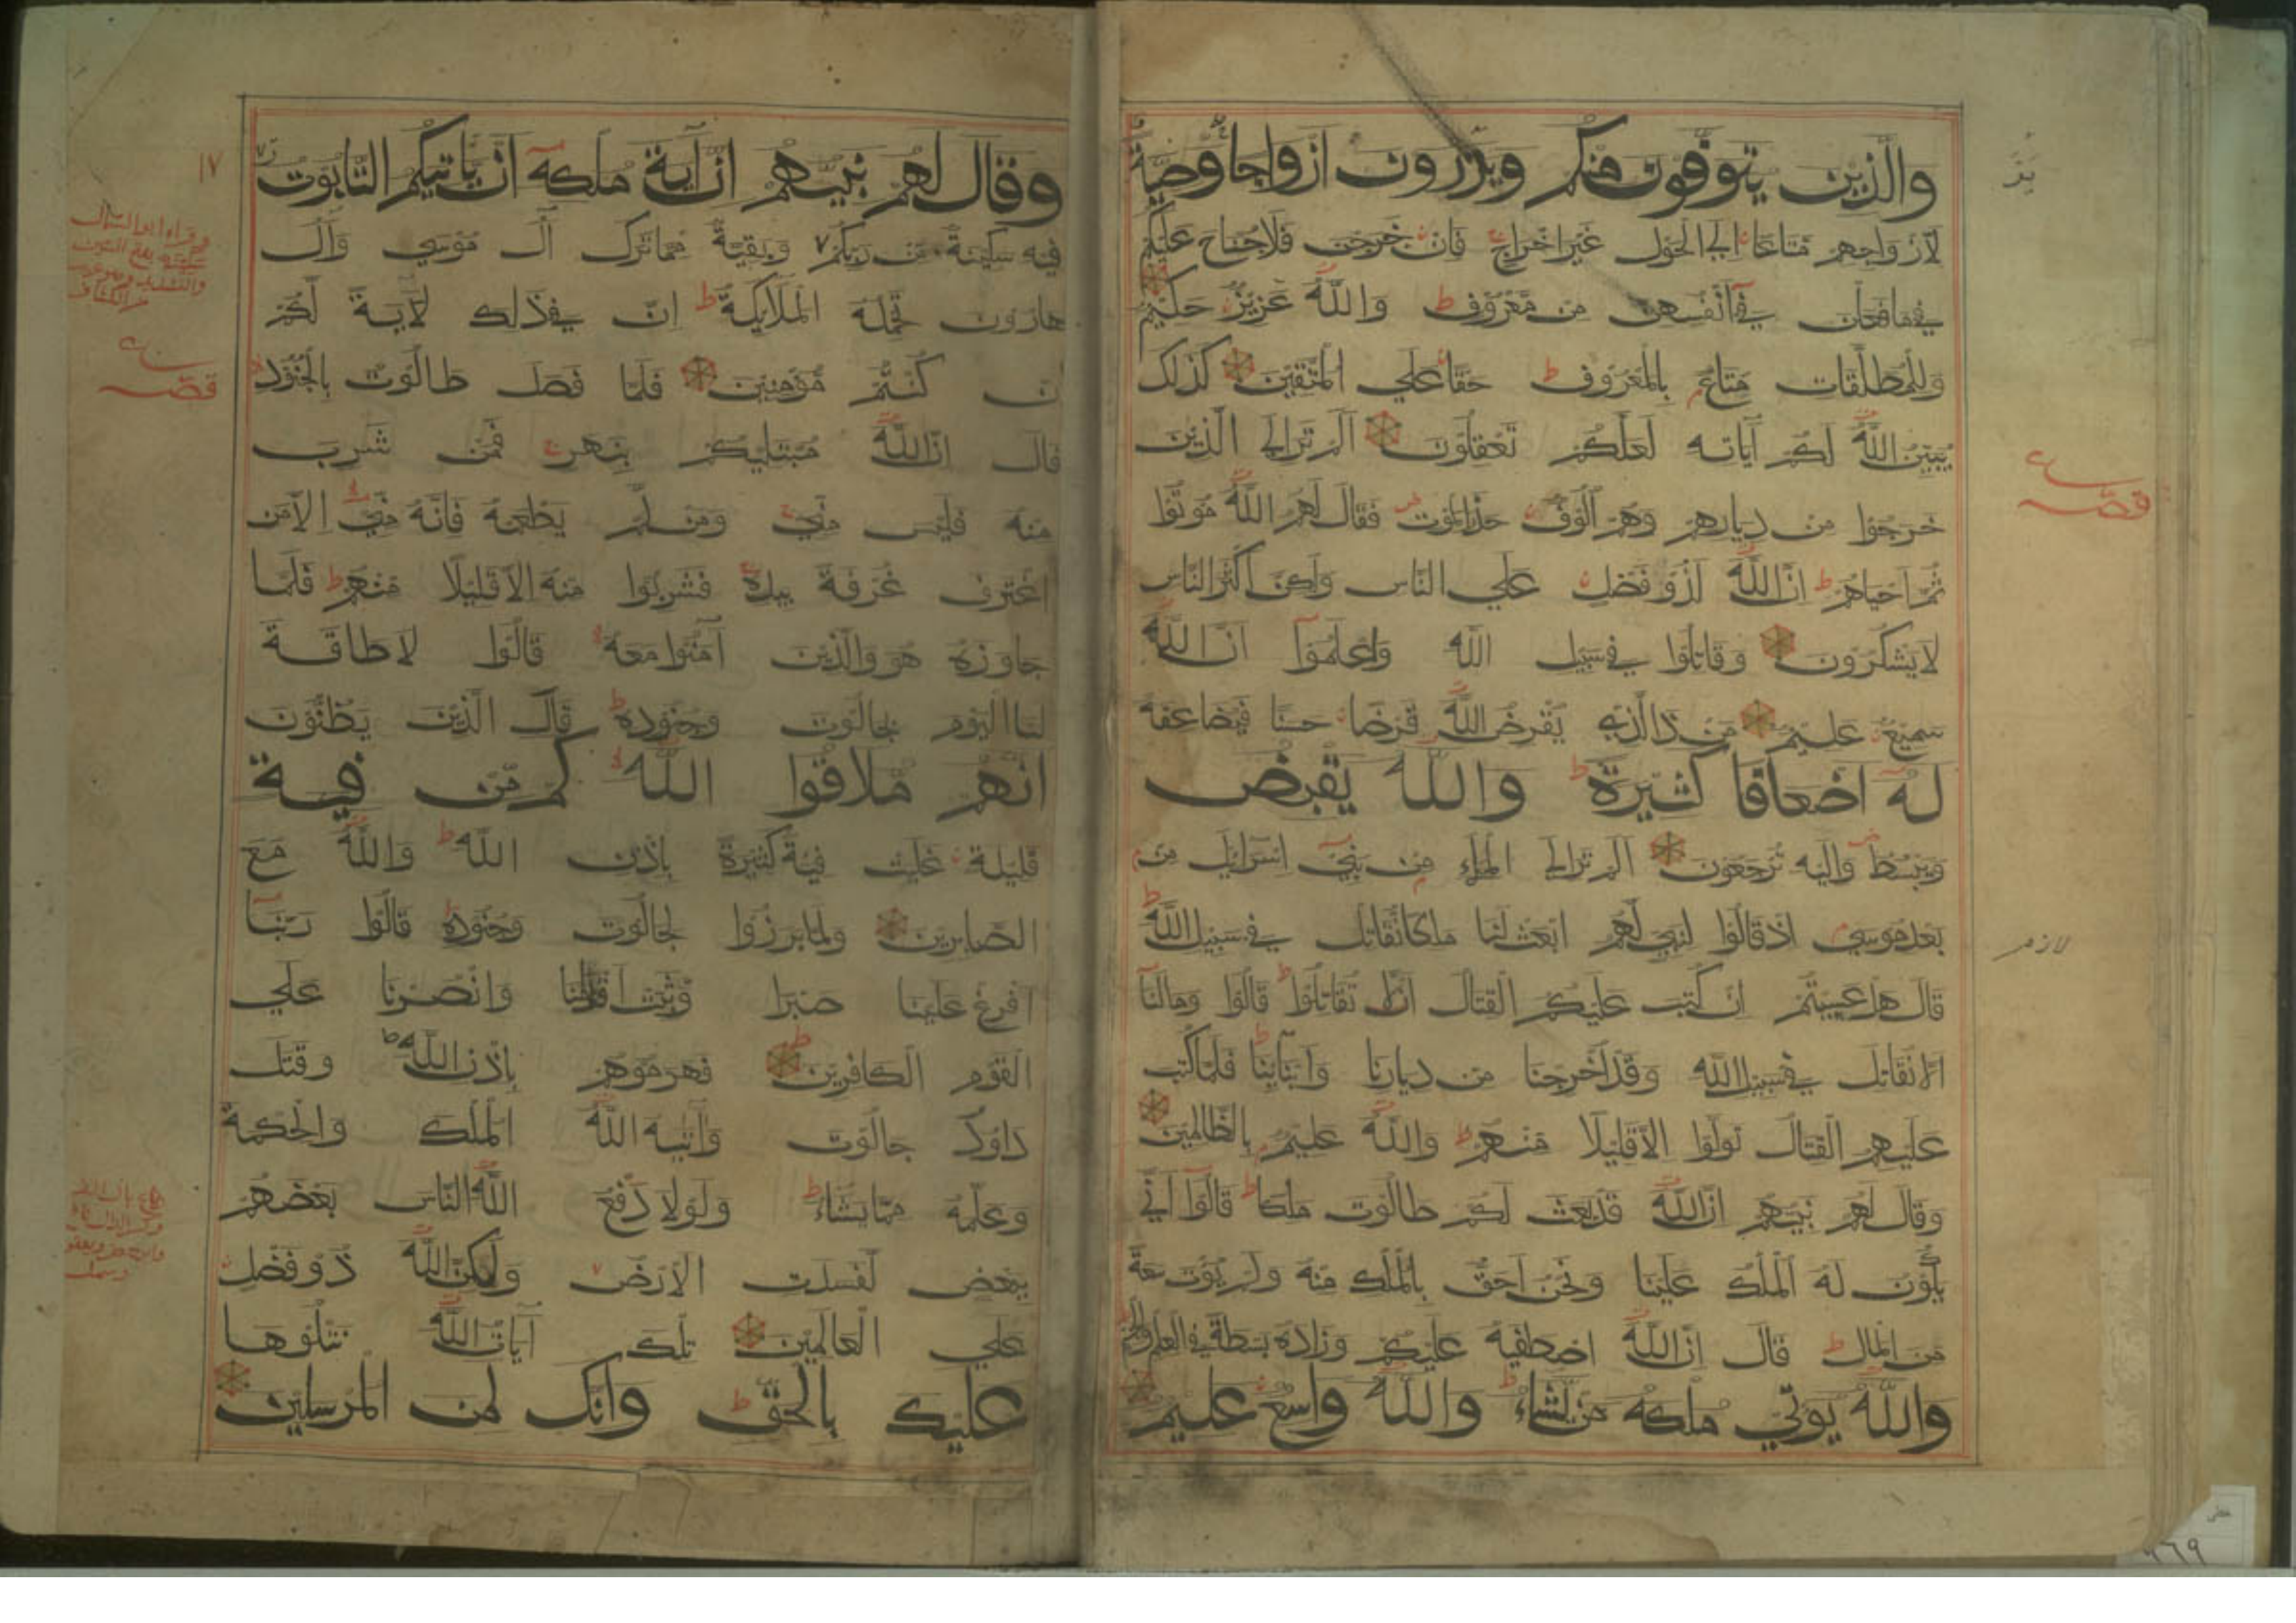 والذين يتوفون منكم ويذرون ازواجا وصية
لازواجهم متاعا الي الحول غير اخراج فان خرجن فلا جناح عليكم
في ما فعلن في انفسهن من معروف والله عزيز حكيم
وللمطلقات متاع بالمعروف حقا علي المتقين كذلك
يبين الله لكم آياته لعلكم تعقلون الم تر الي الذين
خرجوا من ديارهم وهم الوف حذر الموت فقال لهم الله موتوا
ثم احياهم ان الله لذو فضل علي الناس ولكن اكثر الناس
لا يشكرون وقاتلوا في سبيل الله واعلموا ان الله
سميع عليم من ذا الذي يقرض الله قرضا حسنا فيضاعفه
له اضعافا كثيرة والله يقبض
ويبسط واليه ترجعون الم تر الي الملاء من بني اسرائيل من
بعد موسي اذ قالوا لنبي لهم ابعث لنا ملكا نقاتل في سبيل الله
قال هل عسيتم ان كتب عليكم القتال الا تقاتلوا قالوا ومالنا
الا نقاتل في سبيل الله وقد اخرجنا من ديارنا وابنائنا فلما كتب
عليهم القتال تولوا الا قليلا منهم والله عليم بالظالمين
وقال لهم نبيهم ان الله قد بعث لكم طالوت ملكا قالوا اني
يكون له الملك علينا ونحن احق بالملك منه ولم يؤت سعة
من المال قال ان الله اصطفيه عليكم وزاده بسطة في العلم والجسم
والله يوتي ملكه من يشاء والله واسع عليم
قصه
لازم
وقال لهم نبيهم ان آية ملكه ان ياتيكم التابوت
فيه سكينة من ربكم وبقية مما ترك آل موسي وآل
هارون تحمله الملائكة ان في ذلك لآية لكم
ان كنتم مؤمنين فلما فصل طالوت بالجنود
قال ان الله مبتليكم بنهر فمن شرب
منه فليس مني ومن لم يطعمه فانه مني الا من
اغترف غرفة بيده فشربوا منه الا قليلا منهم فلما
جاوزه هو والذين آمنوا معه قالوا لا طاقة
لنا اليوم بجالوت وجنوده قال الذين يظنون
انهم ملاقوا الله كم من فية
قليلة غلبت فية كثيرة باذن الله والله مع
الصابرين ولما برزوا لجالوت وجنوده قالوا ربنا
افرغ علينا صبرا وثبت اقدامنا وانصرنا علي
القوم الكافرين فهزموهم باذن الله وقتل
داود جالوت وآتيه الله الملك والحكمة
وعلمه مما يشاء ولولا دفع الله الناس بعضهم
ببعض لفسدت الارض ولكن الله ذو فضل
علي العالمين تلك آيات الله نتلوها
عليك بالحق وانك لمن المرسلين
١٧
قصه